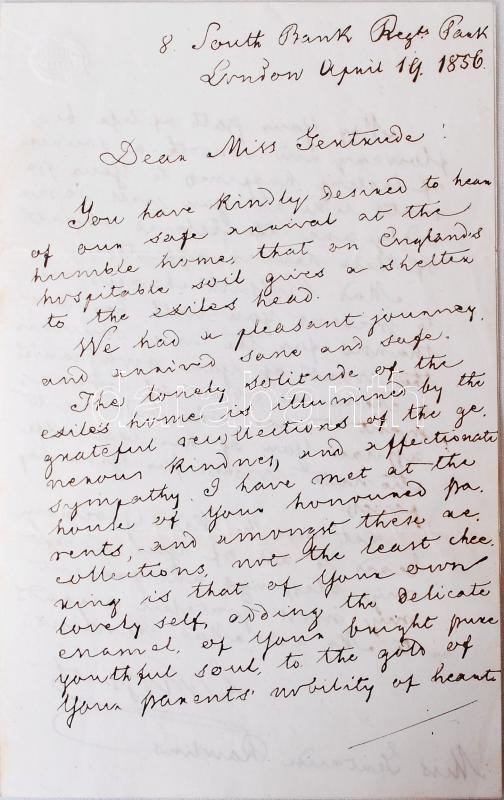 8. South Bank Regts Park
London April 19. 1856.
Dear Miss Gertrude!
You have kindly desired to hear
of our safe arrival at the
humble home, that on England's
hospitable soil gives a shelter
to the exiles head.
We had a pleasant journey.
and arrived sane and safe.
The lonely solitude of the
exile's home is illumined by the
grateful recollections of the ge-
nerous kindness, and affectionate
sympathy I have met at the
house of Your honoured pa-
rents, - and amongst these re-
collections, not the least chee-
ring is that of Your own
lovely self, adding the delicate
enamel of Your bright pure
youthful soul, to the gold of
Your parents' nobility of heart.
darabanth
Miss Gertrude Rawlins